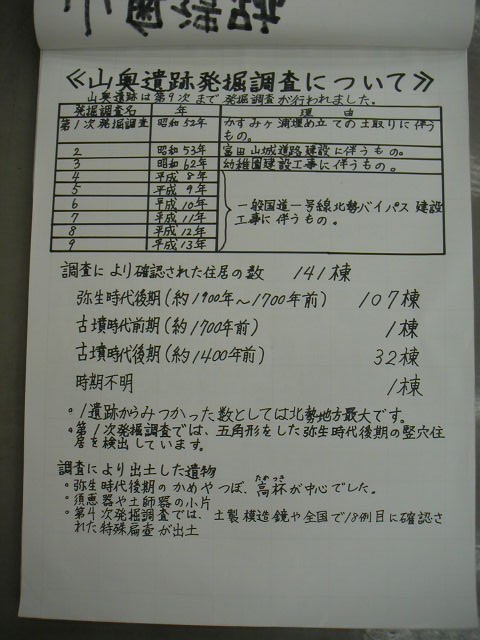 ≪山奥遺跡発掘調査について≫
山奥遺跡は第9次まで発掘調査が行われました。
発掘調査名 年 理由
第1次発掘調査 昭和52年 かすみヶ浦埋め立ての土取りに伴う
もの。
2 昭和53年 富田山城道路建設に伴うもの。
3 昭和62年 幼稚園建設工事に伴うもの。
4 平成8年
5 平成9年
6 平成10年 一般国道一号線北勢バイパス建設
7 平成11年 工事に伴うもの。
8 平成12年
9 平成13年
調査により確認された住居の数 141棟
弥生時代後期(約1900年~1700年前) 107棟
古墳時代前期(約1700年前) 1棟
古墳時代後期(約1400年前) 32棟
時期不明 1棟
。1遺跡からみつかった数としては北勢地方最大です。
。第1次発掘調査では、五角形をした弥生時代後期の竪穴住
居を検出しています。
調査により出土した遺物
。弥生時代後期のかめやつぼ、高杯が中心でした。
たかつき
。須恵器や土師器の小片
。第4次発掘調査では、土製模造鏡や全国で18例目に確認さ
れた特殊扁壺が出土